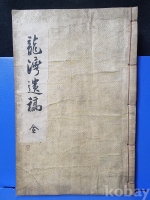 龍灣遺稿
全
kobay